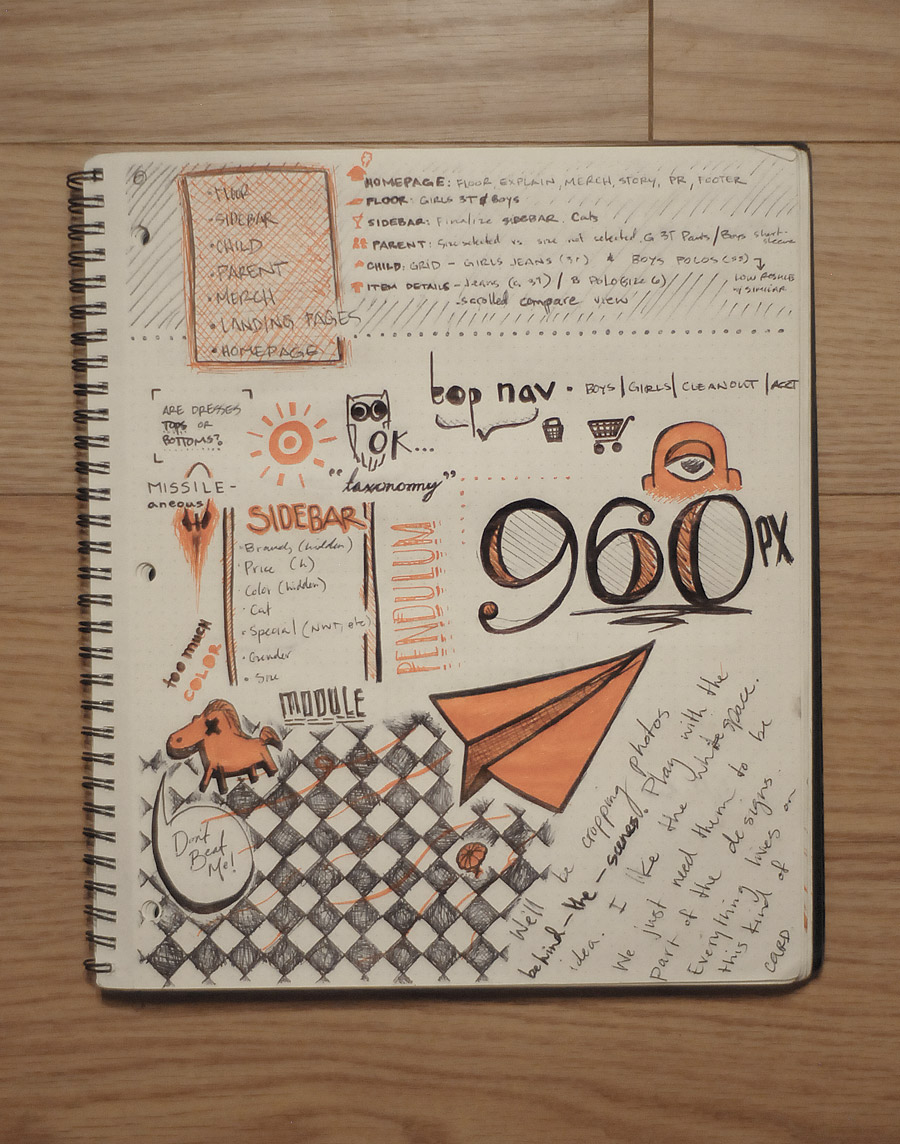 6
• FLOOR
• SIDEBAR
• CHILD
• PARENT
• MERCH
• LANDING PAGES
• HOMEPAGE
HOMEPAGE: FLOOR EXPLAIN, MERCH, STORY, PR, FOOTER
FLOOR: GIRLS 3T & BOYS
SIDEBAR: Finalize SIDEBAR Cats
PARENT: Size selected vs size not selected. G 3T Pants / Boys short-sleeve
CHILD: GRID - GIRLS JEANS (3T) & BOYS POLOS (5T)
LOW RESULTS
W/ SIMILAR
ITEM DETAILS - Jeans (G, 3T) / B POLO (SIZE 6)
- scrolled compare view
top nav • BOYS / GIRLS / CLEANOUT / ACCT
ARE DRESSES
TOPS OR
BOTTOMS?
OK...
"taxonomy"
MISSILE-
aneous
SIDEBAR
• Brands (hidden)
• Price (h)
• Color (hidden)
• Cat
• Special (NWT, etc)
• Gender
• Size
PENDULUM
960 PX
too much
COLOR
MODULE
Don't
Beat
Me!
We'll be cropping photos
behind-the-scenes. Play with the
idea. I like the white space.
We just need them to be
part of the designs
Everything lives on
this kind of
CARD